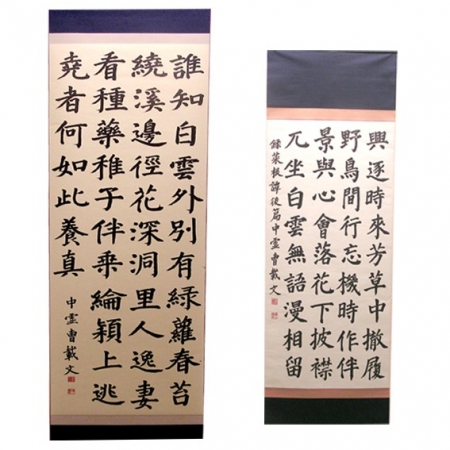 誰知白雲外別有綠蘿春苔
繞溪邊徑花深洞里人逸妻
看種藥稚子伴垂綸穎上逃
堯者何如此養真
申霊曹載文
興逐時來芳草中撤履
野鳥間行忘機時作伴
景與心會落花下披襟
兀坐白雲無語漫相留
錄菜根譚後篇申霊曹載文